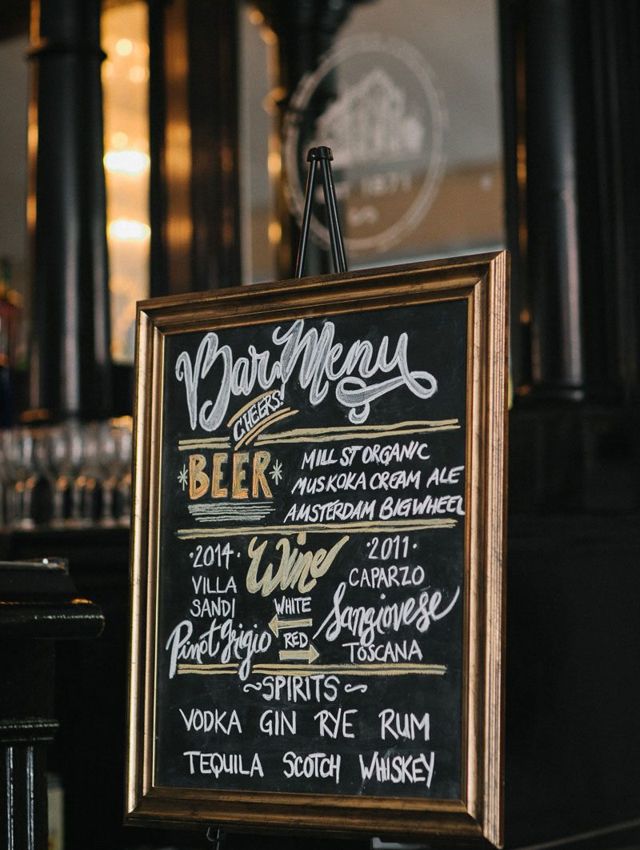 Bar Menu
CHEERS!
BEER
MILL ST ORGANIC
MUSKOKA CREAM ALE
AMSTERDAM BIG WHEEL
Wine
·2014·
VILLA
SANDI
Pinot Grigio
WHITE
RED
·2011·
CAPARZO
Sangiovese
TOSCANA
~SPIRITS~
VODKA GIN RYE RUM
TEQUILA SCOTCH WHISKEY
1871